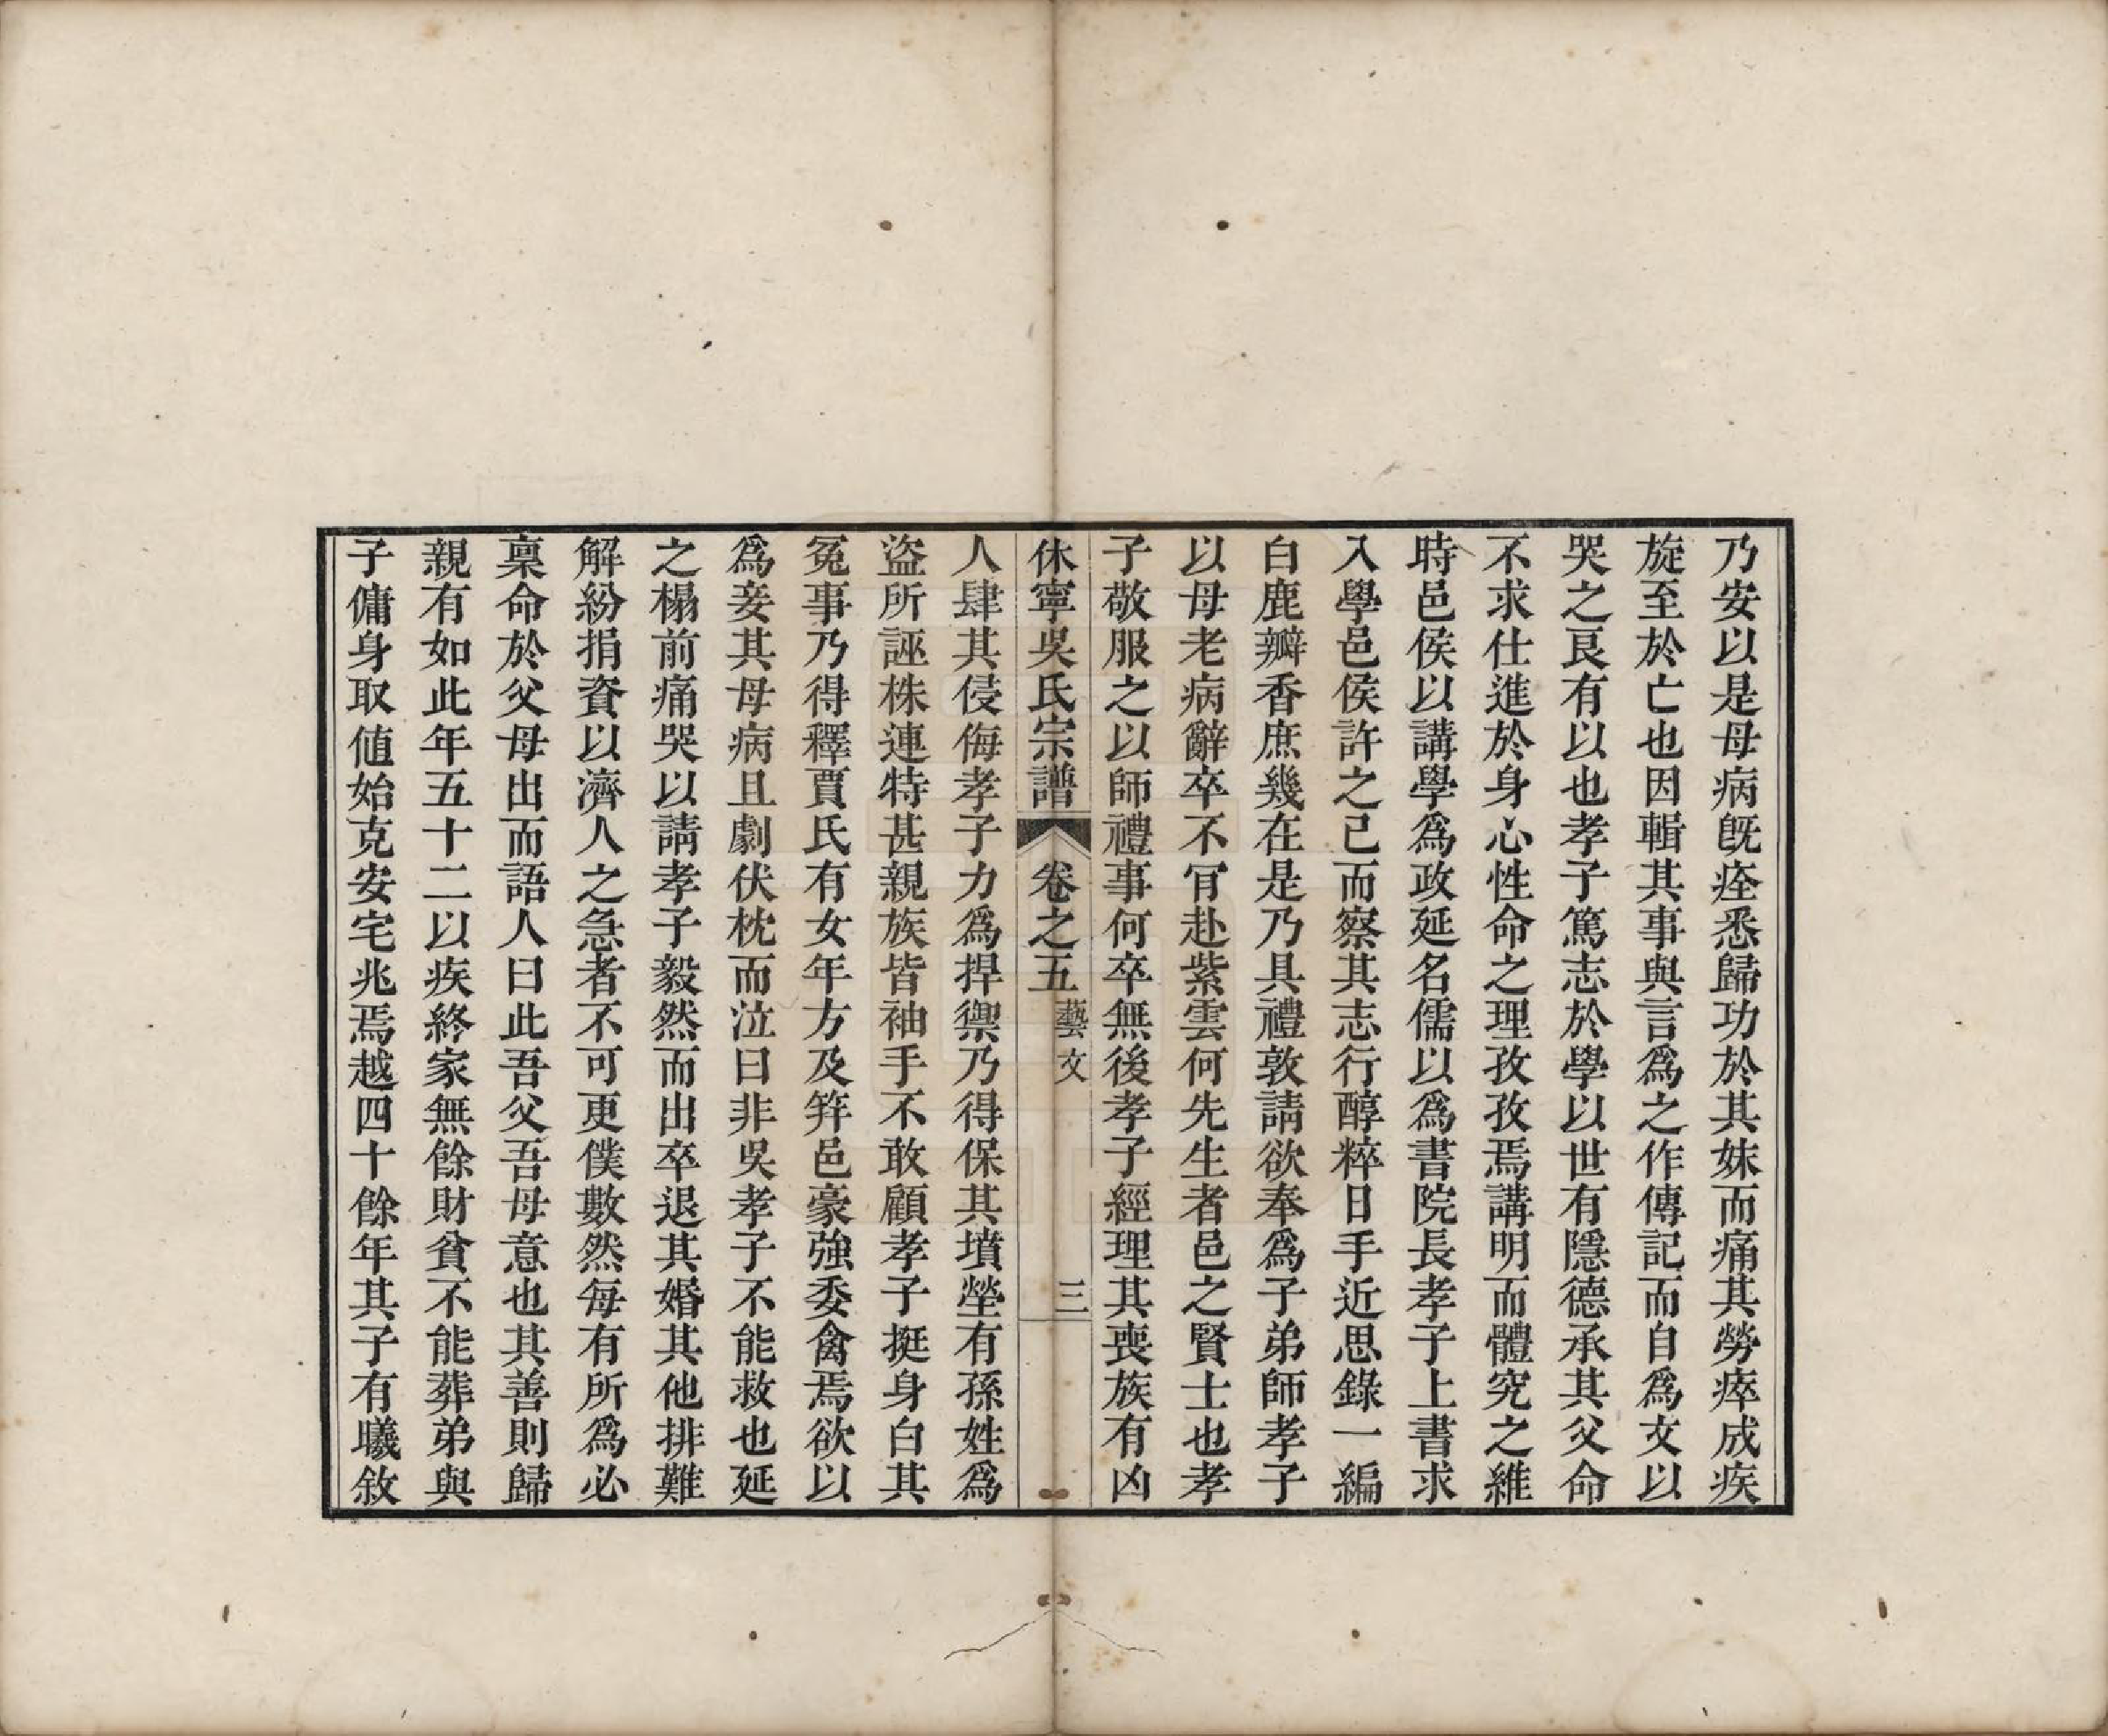 乃安以是母病旣痊悉歸功於其妹而痛其勞瘁成疾
旋至於亡也因輯其事與言爲之作傳記而自爲文以
哭之良有以也孝子篤志於學以世有隱德承其父命
不求仕進於身心性命之理孜孜焉講明而體究之維
時邑侯以講學爲政延名儒以爲書院長孝子上書求
入學邑侯許之已而察其志行醇粹日手近思錄一編
白鹿瓣香庶幾在是乃具禮敦請欲奉爲子弟師孝子
以母老病辭卒不肎赴紫雲何先生者邑之賢士也孝
子敬服之以師禮事何卒無後孝子經理其喪族有凶
休寧吳氏宗譜 卷之五 藝文 三
人肆其侵侮孝子力爲捍禦乃得保其墳塋有孫姓爲
盜所誣株連特甚親族皆袖手不敢顧孝子挺身白其
冤事乃得釋賈氏有女年方及笄邑豪強委禽焉欲以
爲妾其母病且劇伏枕而泣曰非吳孝子不能救也延
之榻前痛哭以請孝子毅然而出卒退其婚其他排難
解紛捐資以濟人之急者不可更僕數然每有所爲必
稟命於父母出而語人曰此吾父吾母意也其善則歸
親有如此年五十二以疾終家無餘財貧不能葬弟與
子傭身取值始克安宅兆焉越四十餘年其子有曦敘